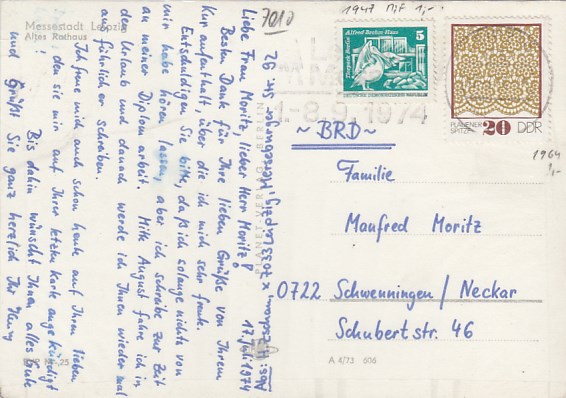 Messestadt Leipzig
Altes Rathaus
7010
1947 Mif 1,-
Alfred-Brehm-Haus
5
Tierpark Berlin
DEUTSCHE DEMOKRATISCHE REPUBLIK
PLAUENER
SPITZE
20 DDR
1.-8.9.1974
1964
1,-
~ BRD ~
Familie
Manfred Moritz
0722 Schwenningen / Neckar
Schubertstr. 46
A 4/73 606
PLANET-VERLAG BERLIN
EVP M 0,25
Abs: H. x 7033 Leipzig, Merseburger Str. 92
17. Juli 1974
Liebe Frau Moritz, lieber Herr Moritz!
Besten Dank für Ihre lieben Grüße von Ihrem
Kuraufenthalt, über die ich mich sehr freute.
Entschuldigen Sie bitte, daß ich solange nichts von
mir habe hören lassen, aber ich schreibe zur Zeit
an meiner Diplomarbeit. Mitte August fahre ich in
den Urlaub und danach werde ich Ihnen wieder mal
ausführlicher schreiben.
Ich freue mich auch schon heute auf Ihren lieben
den sie mir auf Ihrer letzten Karte angekündigt
Bis dahin wünscht Ihnen alles Gute
und Grüßt Sie ganz herzlich Ihr